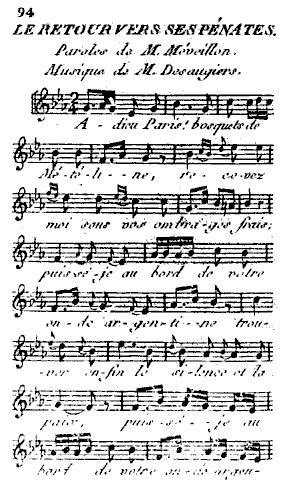 94
LE RETOUR VERS SES PÉNATES.
Paroles de M. Méveillon.
Musique de M. Desaugiers.
A - dieu Paris! bosquets de
Mé-té-li-ne, re-cevez
moi sous vos ombra-ges frais;
puis-sé-je au bord de votre
on-de ar-gen-ti-ne trou-
-ver en-fin le si-lence et la
paix, puis-sé-je au
bord de votre on-de argen-